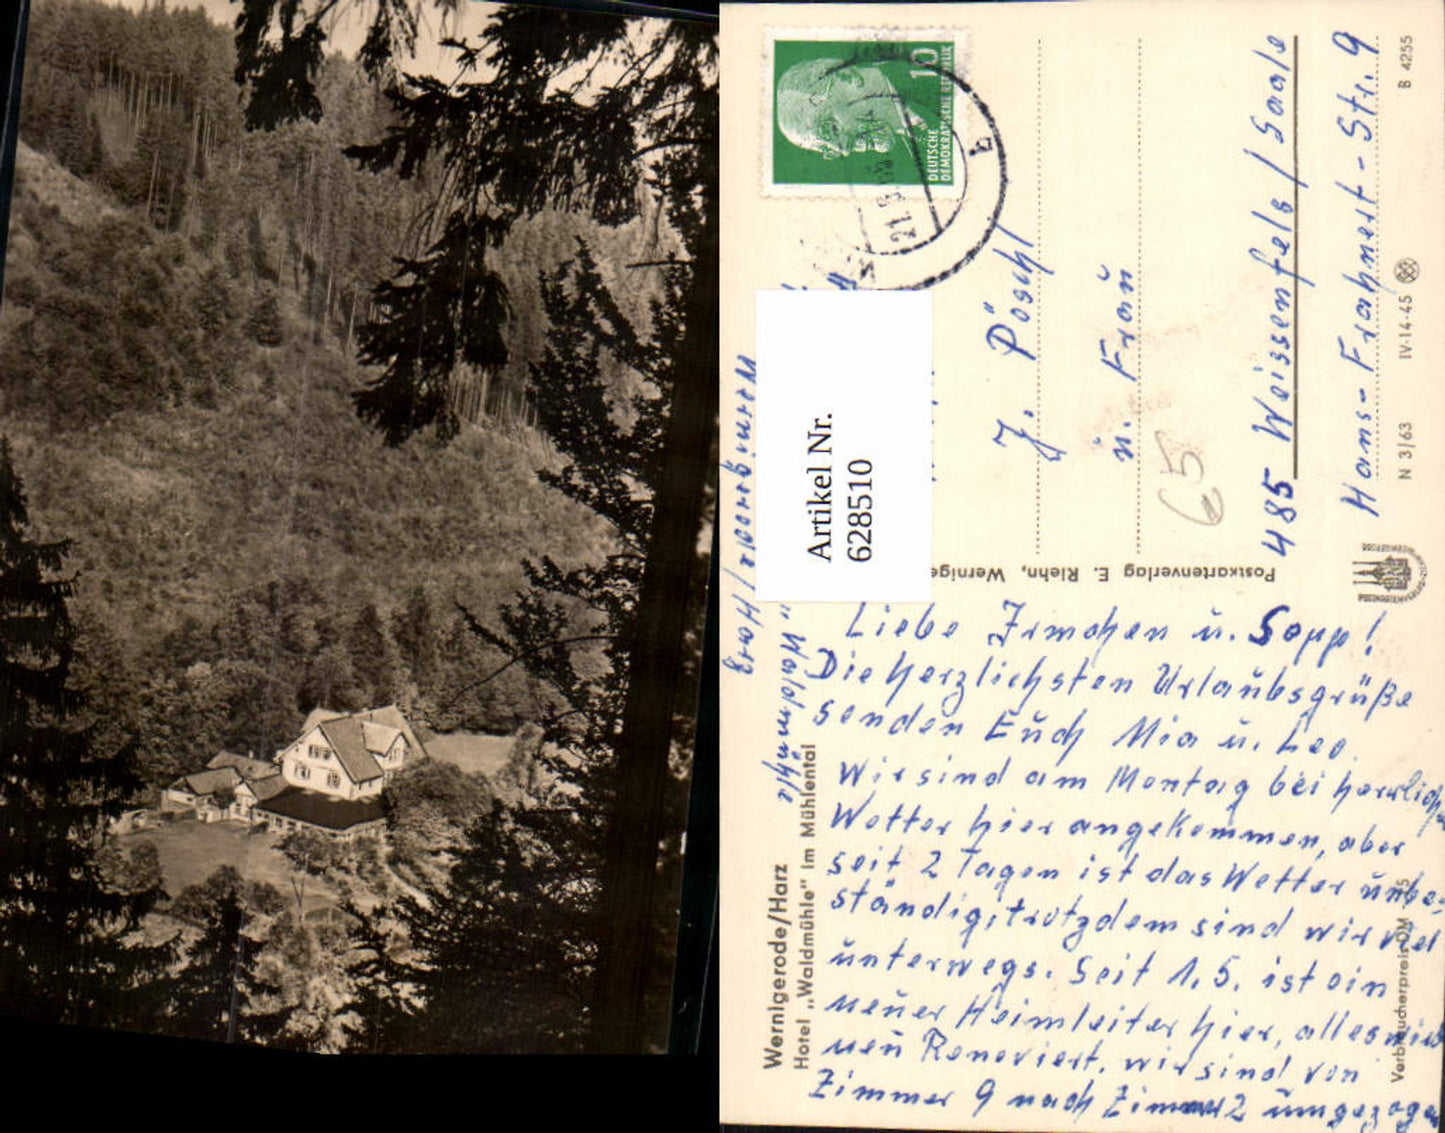 Wernigerode/Harz
Hotel „Waldmühle" im Mühlental
Wernigerode/Harz
„Waldmühle
Liebe Irmchen u. Sepp!
Die herzlichsten Urlaubsgrüße
senden Euch Mia u. Leo.
Wir sind am Montag bei herrlich
Wetter hier angekommen, aber
seit 2 Tagen ist das Wetter unbe-
ständig, trotzdem sind wir viel
unterwegs. Seit 1.5. ist ein
neuer Heimleiter hier, alles wird
neu Renoviert, wir sind von
Zimmer 9 nach Zimmer 2 umgezogen
Postkartenverlag E. Riehn, Wernige
Artikel Nr.
628510
10
DEUTSCHE
DEMOKRATISCHE REPUBLIK
21.5
b
J. Pöschl
u. Frau
485 Weissenfels/Saale
Hans-Frahnert-Str. 9
65
N 3/63 IV-14-45 B 4255
Verbraucherpreis DM